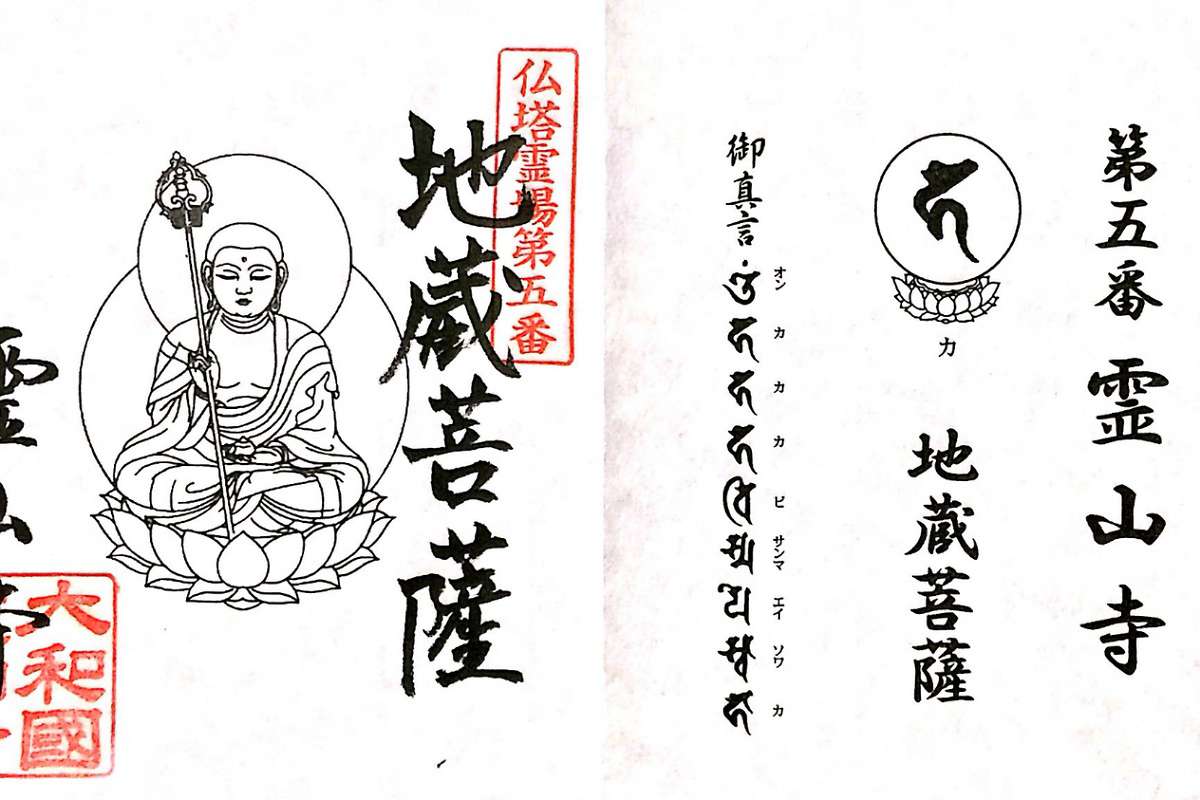 第五番 霊山寺
カ
地蔵菩薩
オン カ カ カ ビ サンマ エイ ソワ カ
御真言
仏塔霊場第五番
地蔵菩薩
大和國